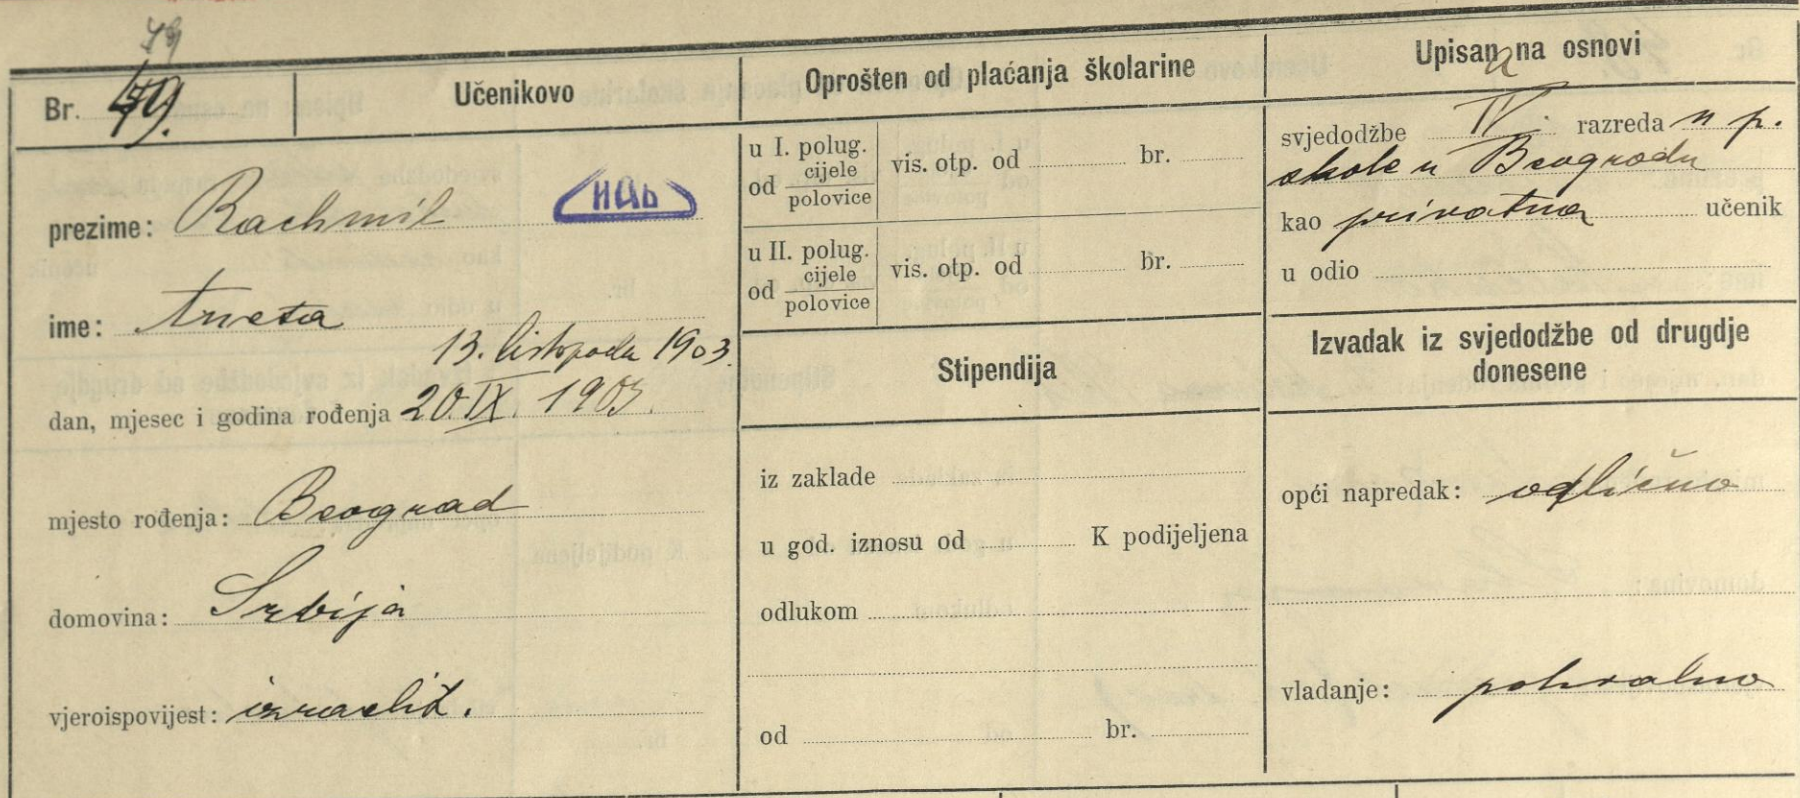 79
Br. 79.
Učenikovo
prezime: Rachmil
НАБ
ime: Aneta
13. listopada 1903
dan, mjesec i godina rođenja 20. IX. 1903.
mjesto rođenja: Beograd
domovina: Srbija
vjeroispovijest: izraelit.
Oprošten od plaćanja školarine
u I. polug.
od cijele
polovice
vis. otp. od br.
u II. polug.
od cijele
polovice
vis. otp. od br.
Stipendija
iz zaklade
u god. iznosu od K podijeljena
odlukom
od br.
Upisana na osnovi
svjedodžbe IV. razreda n p.
škole u Beogradu
kao privatna učenik
u odio
Izvadak iz svjedodžbe od drugdje
donesene
opći napredak: odlično
vladanje: pohvalno